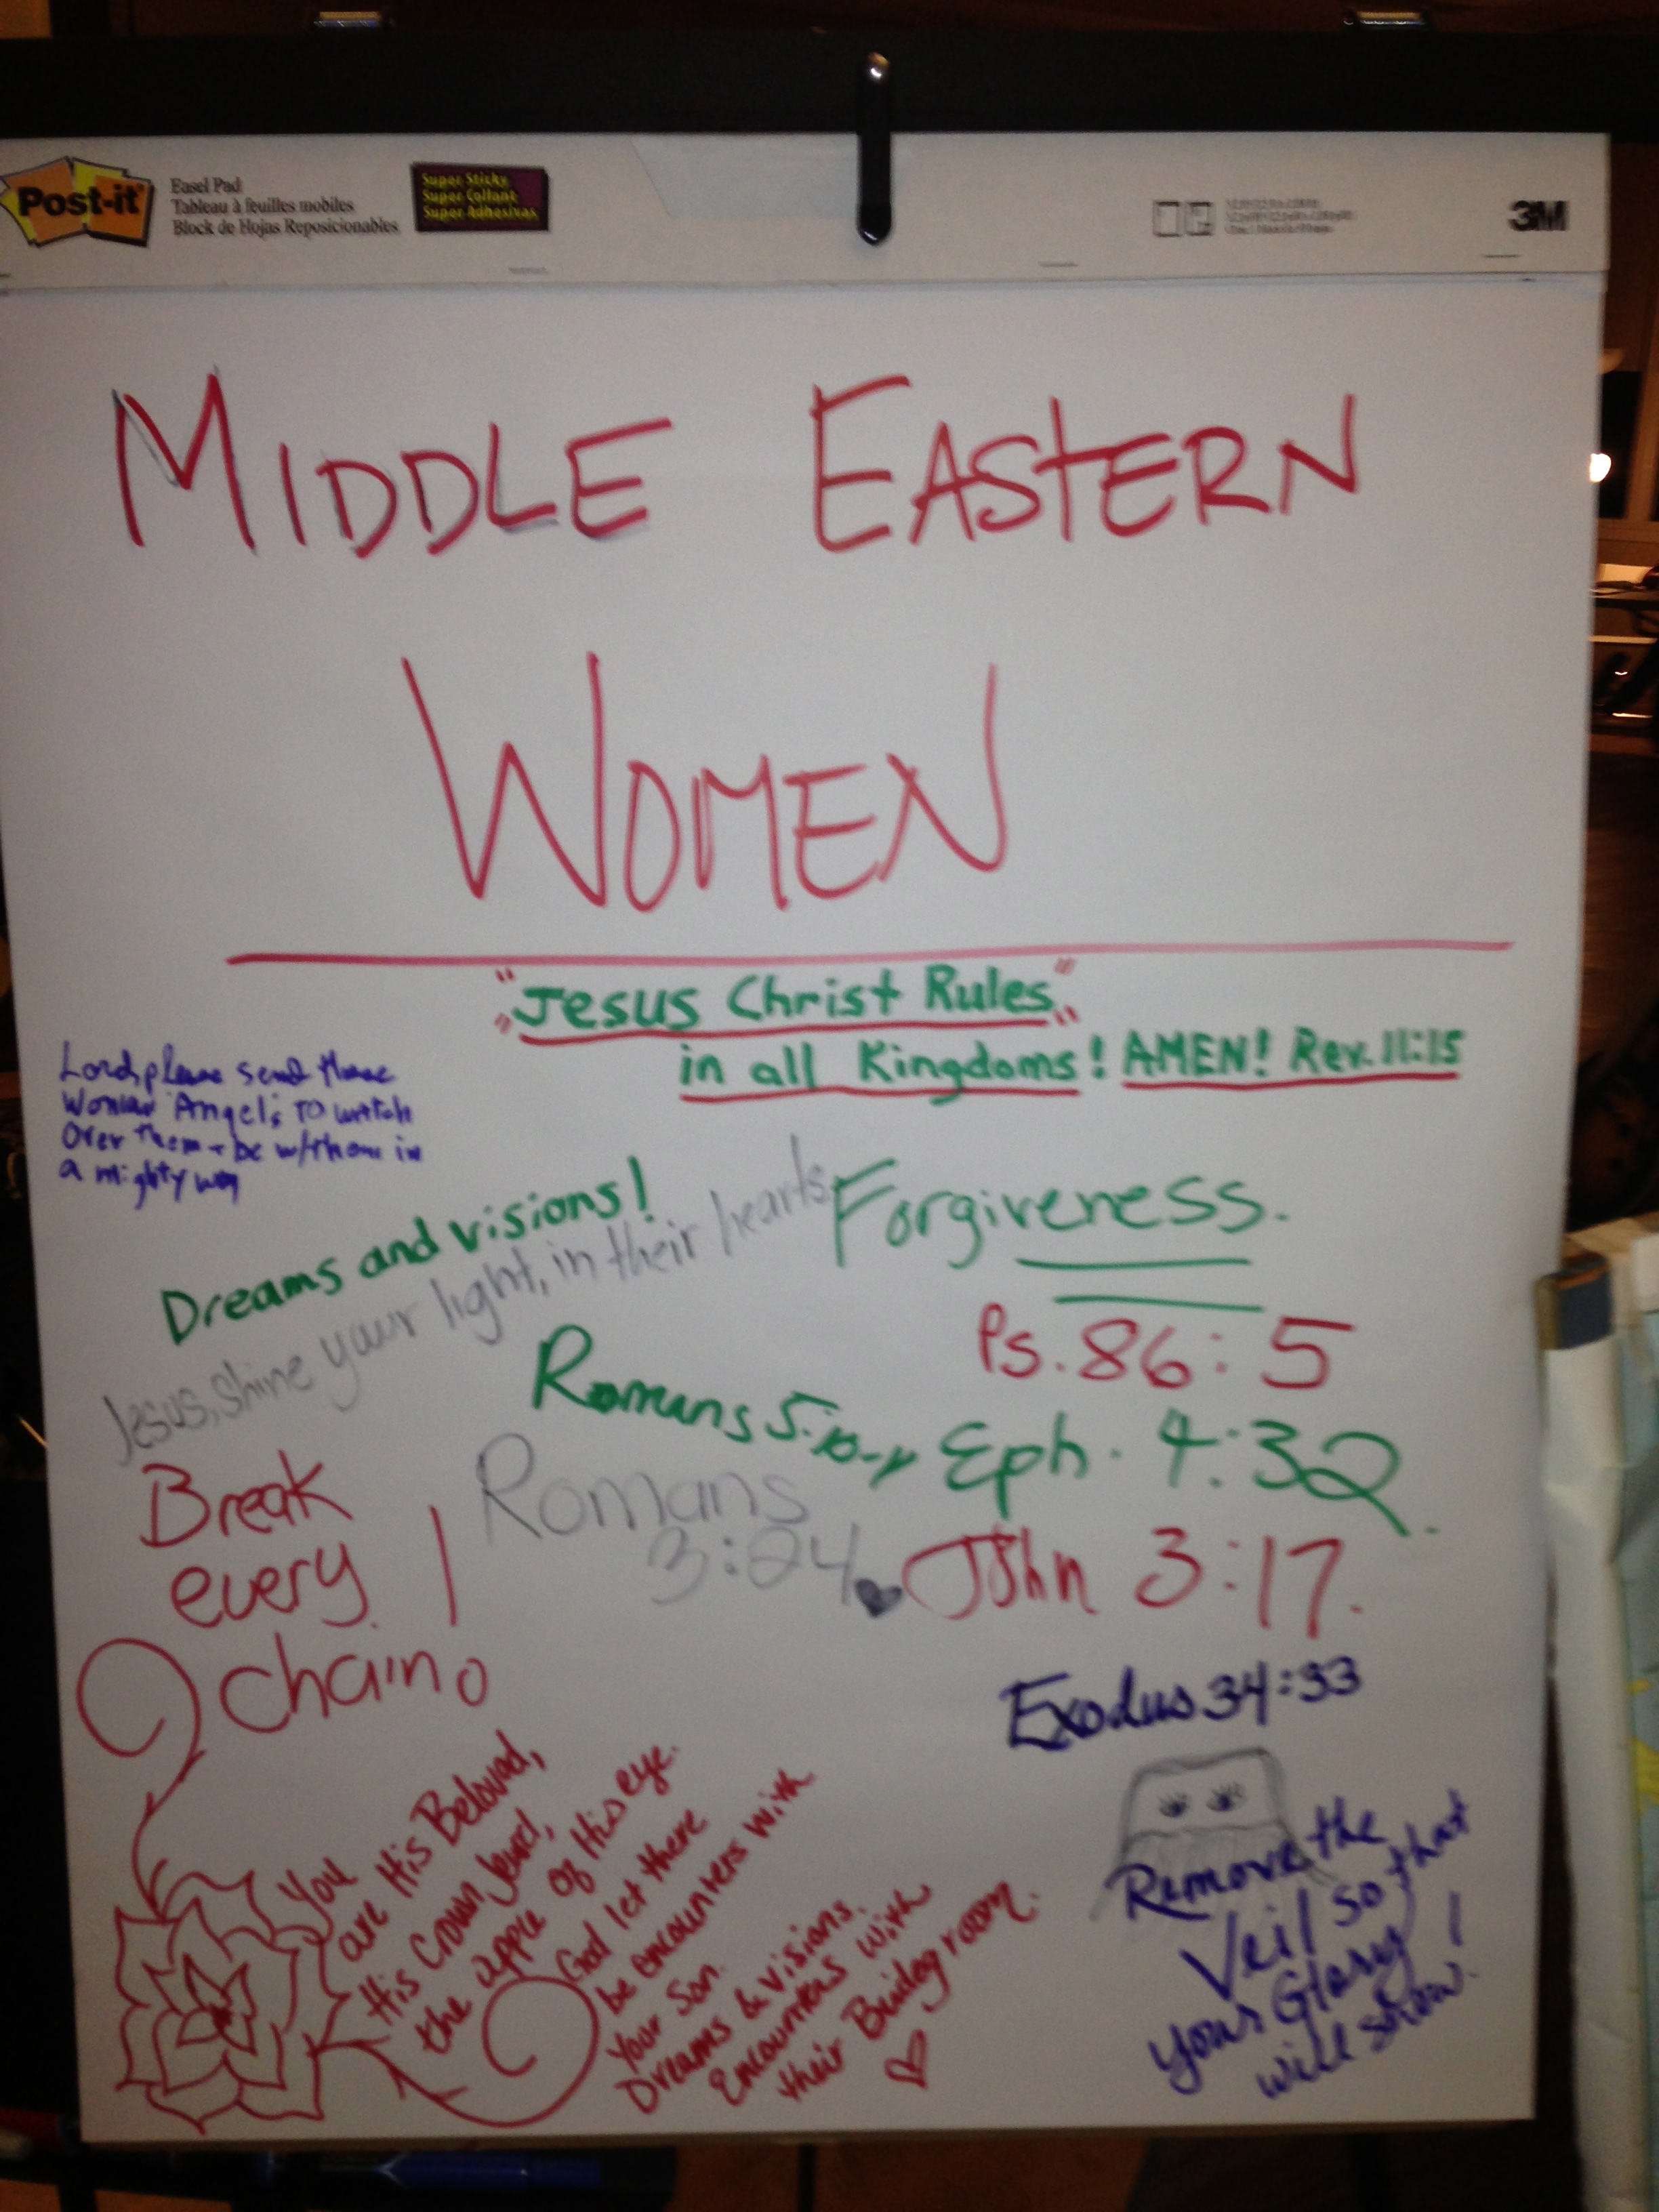 Post-it
Easel Pad
Tableau à feuilles mobiles
Block de Hojas Reposicionables
Super Sticky
Super Collant
Super Adhesivas
3M
MIDDLE EASTERN
WOMEN
"Jesus Christ Rules"
in all Kingdoms! AMEN! Rev. 11:15
Lord, please send these
Women Angels to watch
Over Them + be w/them in
a mighty way
Dreams and visions!
Jesus, shine your light, in their hearts
Forgiveness.
Ps. 86:5
Romans 5:
Eph. 4:32
Romans
3:24
John 3:17.
Break
every
chain
Exodus 34:33
You
are His Beloved,
His Crown Jewel,
the apple of His eye.
God let there
be encounters with
Your Son.
Dreams & visions.
Encounters with
their Bridegroom.
Remove the
Veil so that
your Glory
will show!